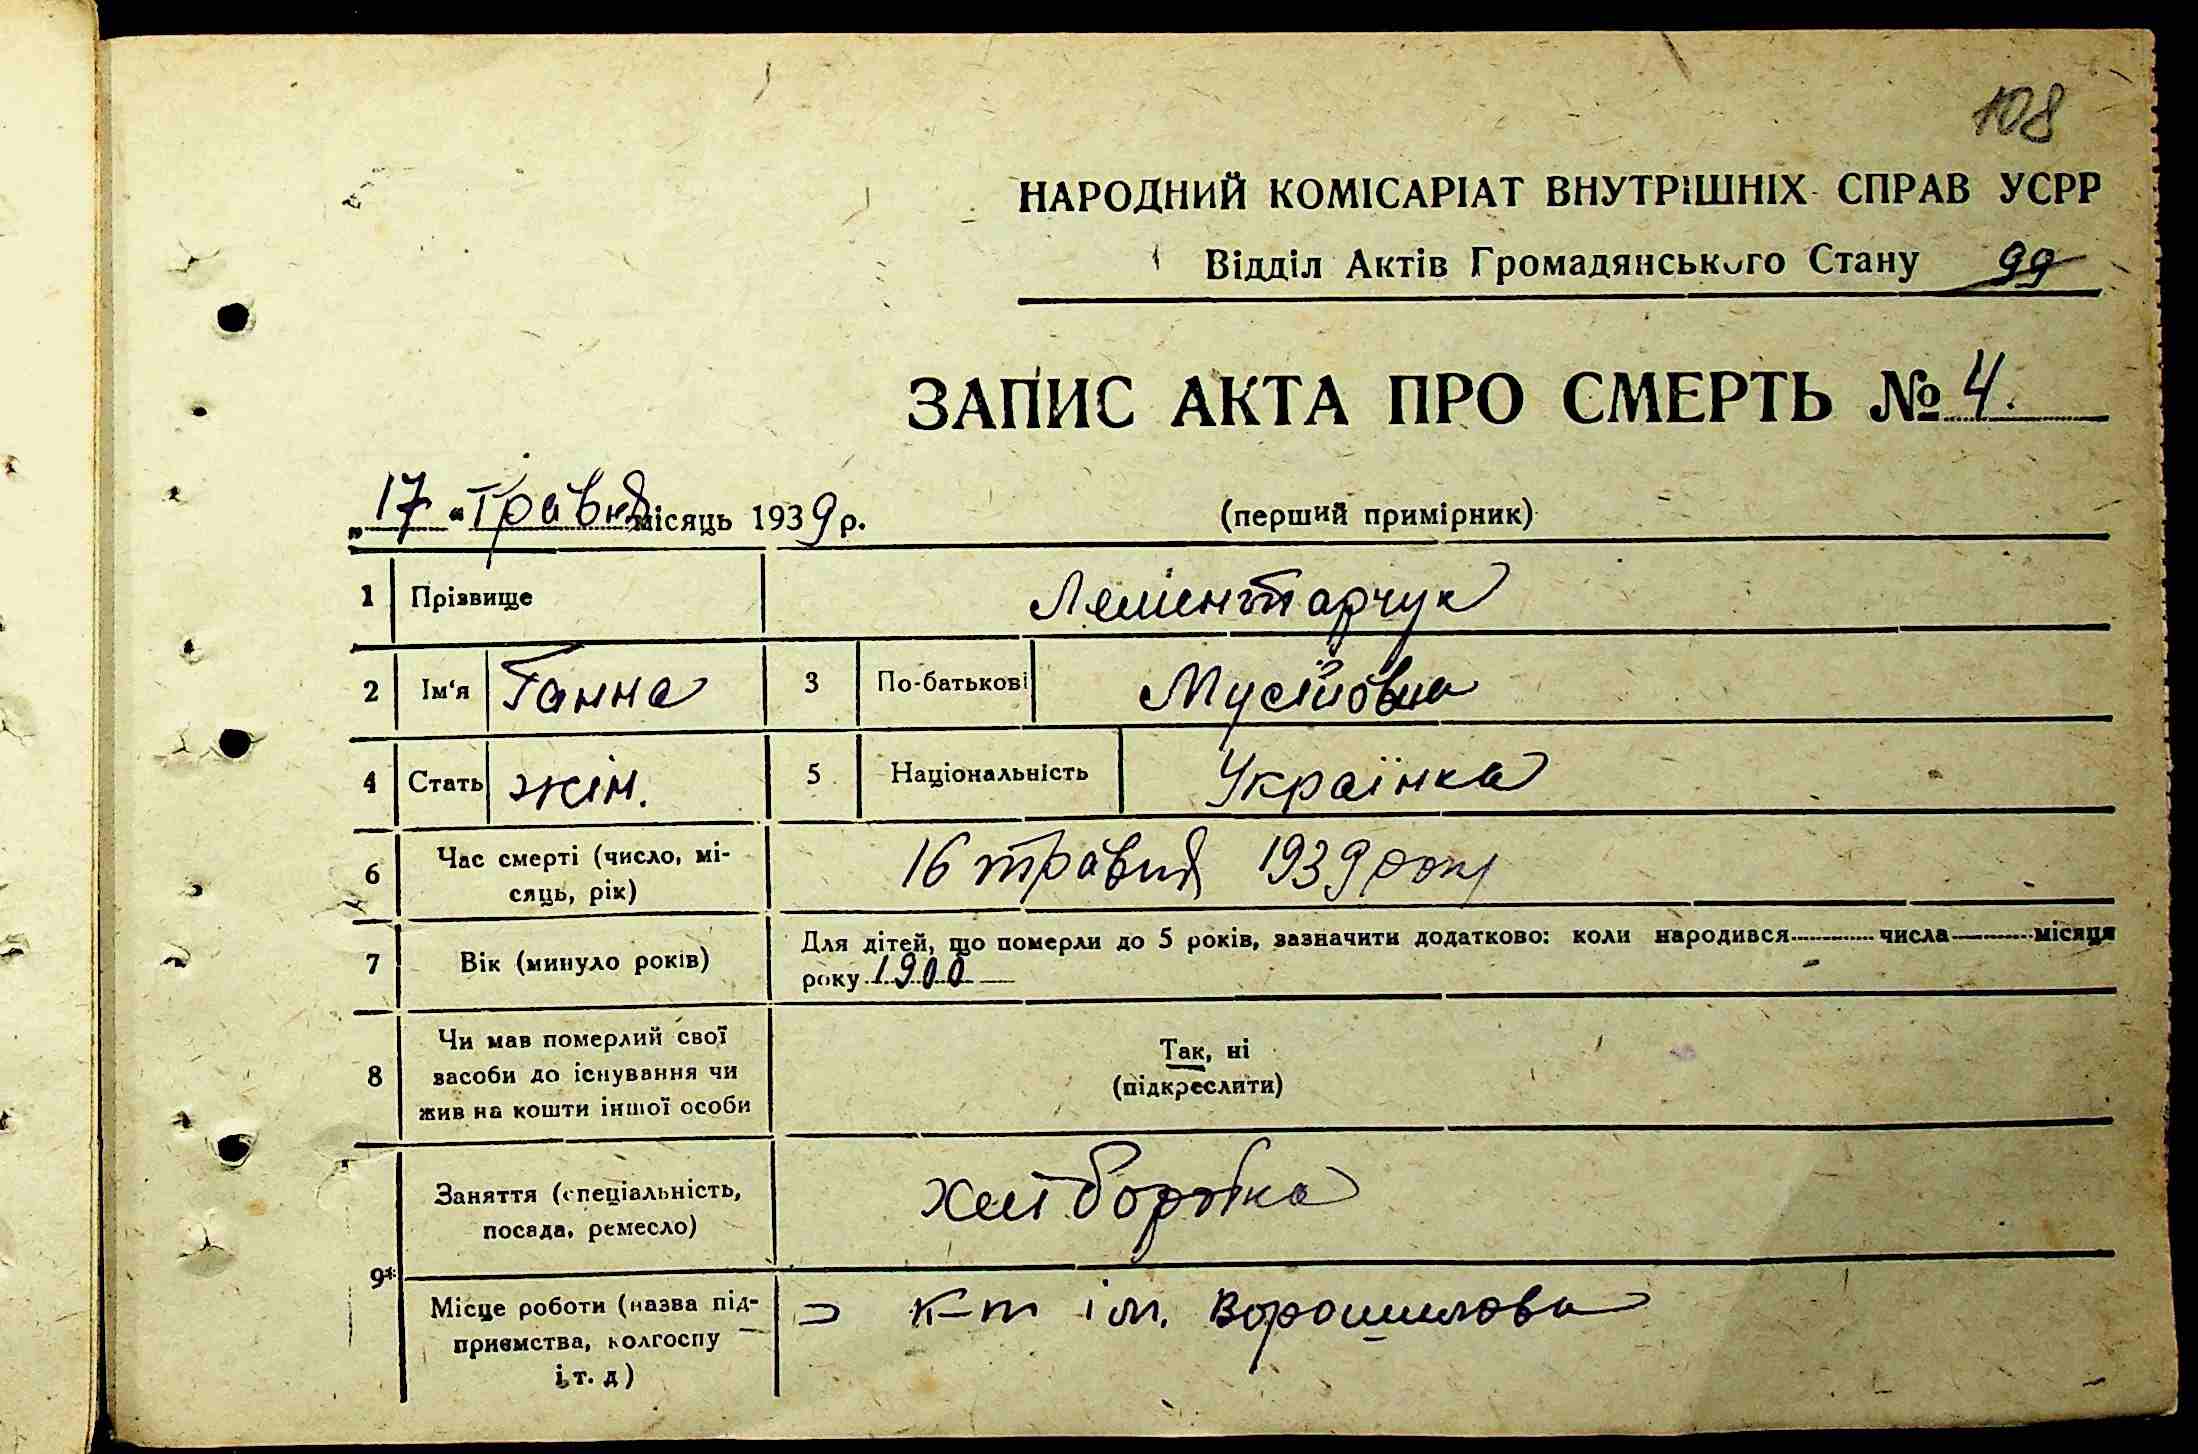 108
НАРОДНИЙ КОМІСАРІАТ ВНУТРІШНІХ СПРАВ УСРР
Відділ Актів Громадянського Стану 99
ЗАПИС АКТА ПРО СМЕРТЬ № 4.
„17“ Травня місяць 1939 р. (перший примірник)
1 Прізвище Лементарчук
2 Ім'я Ганна 3 По-батькові Мусіївна
4 Стать жін. 5 Національність Українка
6 Час смерті (число, мі-
сяць, рік) 16 травня 1939 року
7 Вік (минуло років) Для дітей, що померли до 5 років, зазначити додатково: коли народився числа місяця
року 1900
8 Чи мав померлий свої
засоби до існування чи
жив на кошти іншої особи
Так, ні
(підкреслити)
9* Заняття (спеціальність,
посада, ремесло) Хліборобка
Місце роботи (назва під-
приємства, колгоспу
і т. д) к-т ім. Ворошилова